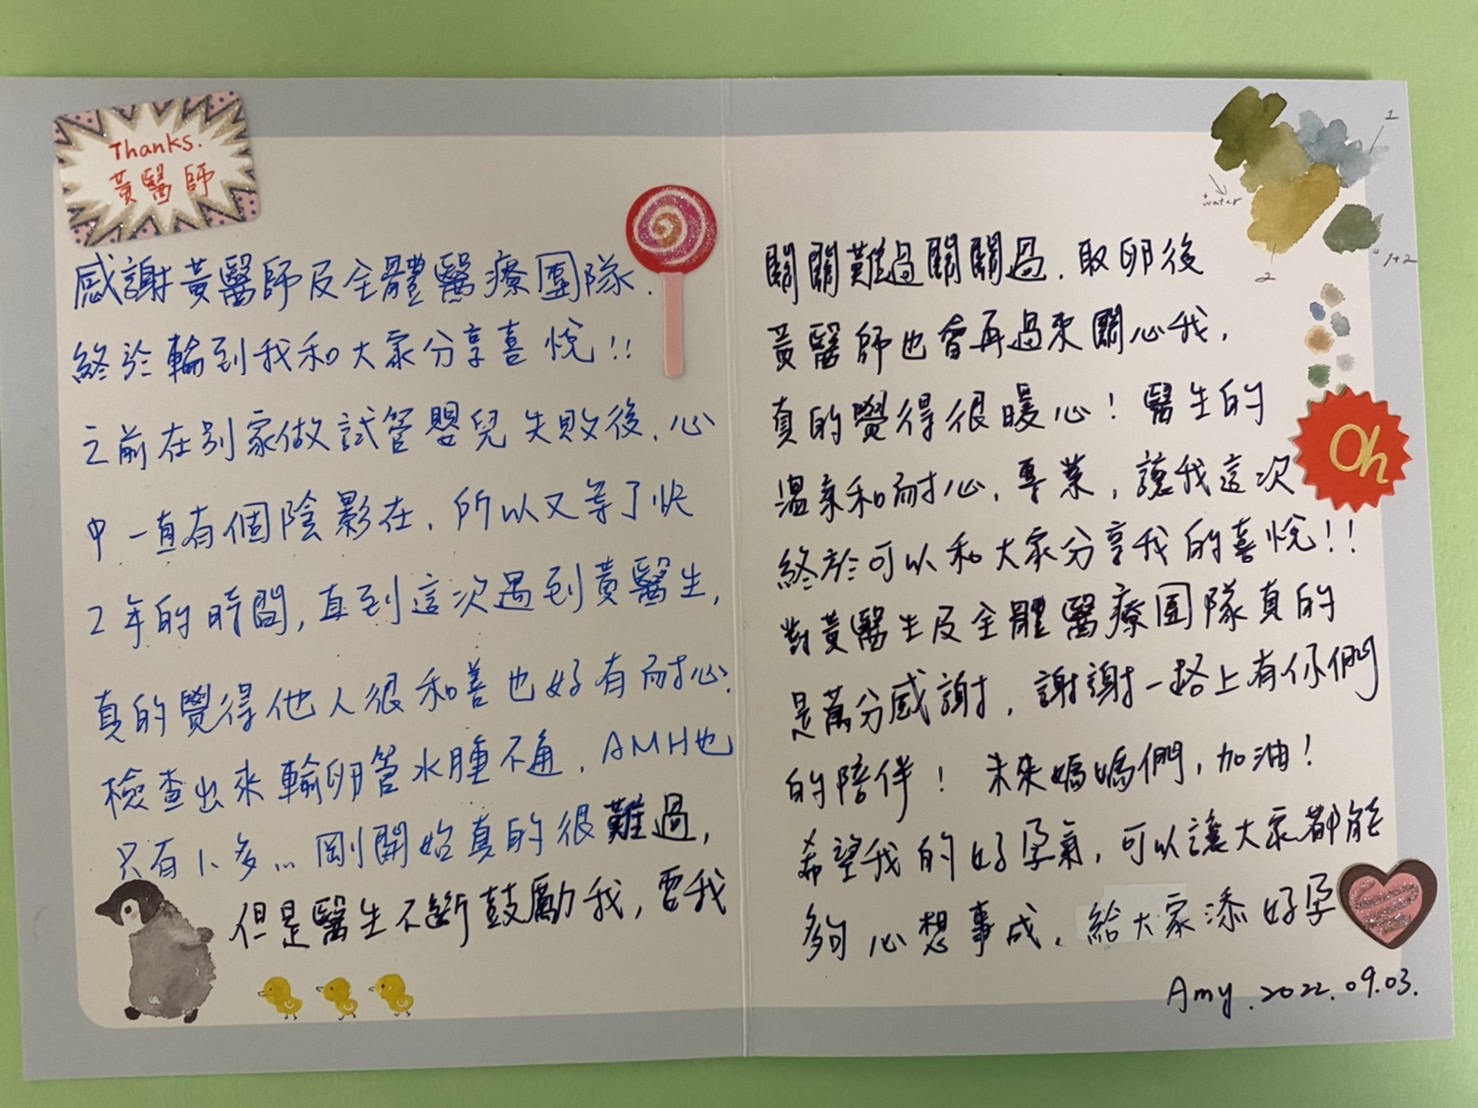 Thanks.
黃醫師
感謝黃醫師及全體醫療團隊.
終於輪到我和大家分享喜悅!!
之前在別家做試管嬰兒失敗後,心
中一直有個陰影在,所以又等了快
2年的時間,直到這次遇到黃醫生,
真的覺得他人很和善也好有耐心.
檢查出來輸卵管水腫不通,AMH也
只有1.多...剛開始真的很難過,
但是醫生不斷鼓勵我,要我
關關難過關關過.取卵後
黃醫師也會再過來關心我,
真的覺得很暖心!醫生的
溫柔和耐心,專業,讓我這次
終於可以和大家分享我的喜悅!!
對黃醫生及全體醫療團隊真的
是萬分感謝,謝謝一路上有你們
的陪伴!未來媽媽們,加油!
希望我的好孕氣,可以讓大家都能
夠心想事成,給大家添好孕
Amy.2022.09.03.
1
+water
2
1+2
Oh